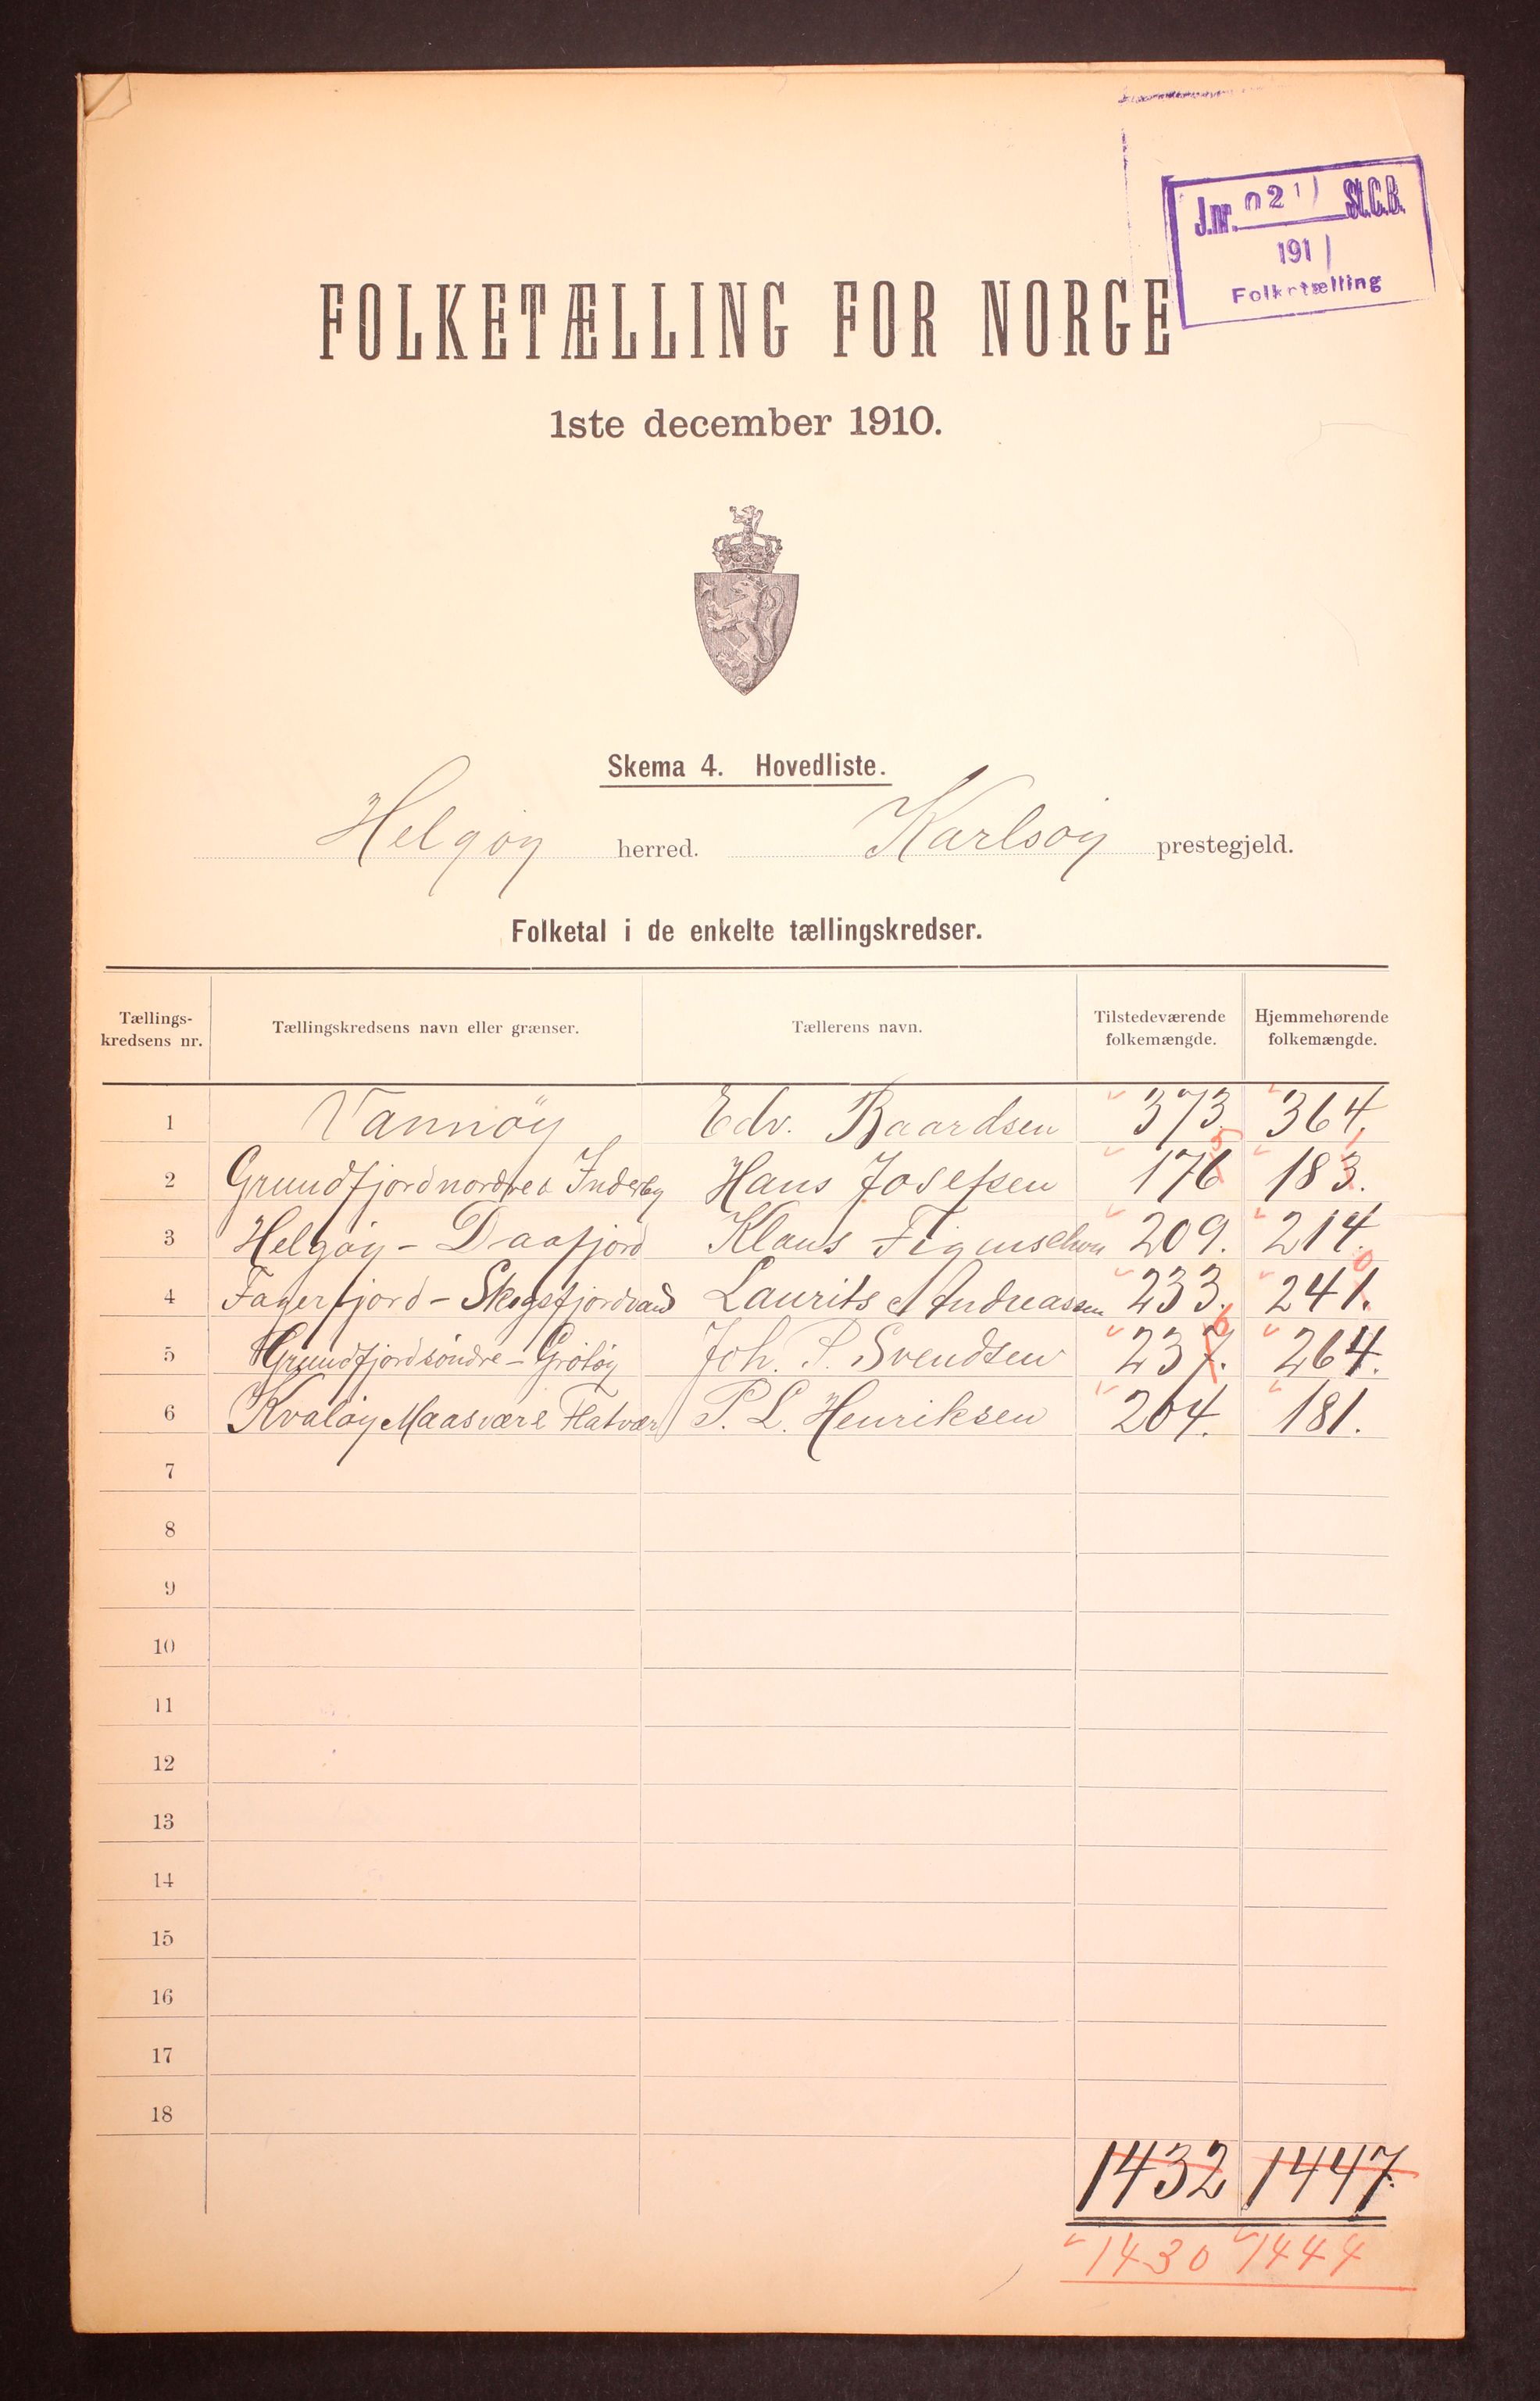 J.nr. 021 St.C.B.
191
Folketælling
FOLKETÆLLING FOR NORGE
1ste december 1910.
Skema 4. Hovedliste.
Helgøy herred. Karlsøy prestegjeld.
Folketal i de enkelte tællingskredser.
Tællings-kredsens nr. Tællingskredsens navn eller grænser. Tællerens navn. Tilstedeværende folkemængde. Hjemmehørende folkemængde.
1 Vannøy Edv. Baardsen 373. 364.
2 Grundfjord nordre & Inderby Hans Josefsen 176 5 183. 1
3 Helgøy - Daafjord Klaus 209. 214.
4 Fagerfjord - Skogsfjordvand Laurits Andreassen 233. 241. 0
5 Grundfjord söndre - Grötöy Joh. P. Svendsen 237. 6 264.
6 Kvaløy Maasvære Flatvær P. L. Henriksen 204. 181.
7
8
9
10
11
12
13
14
15
16
17
18
1432 1447.
1430 1444